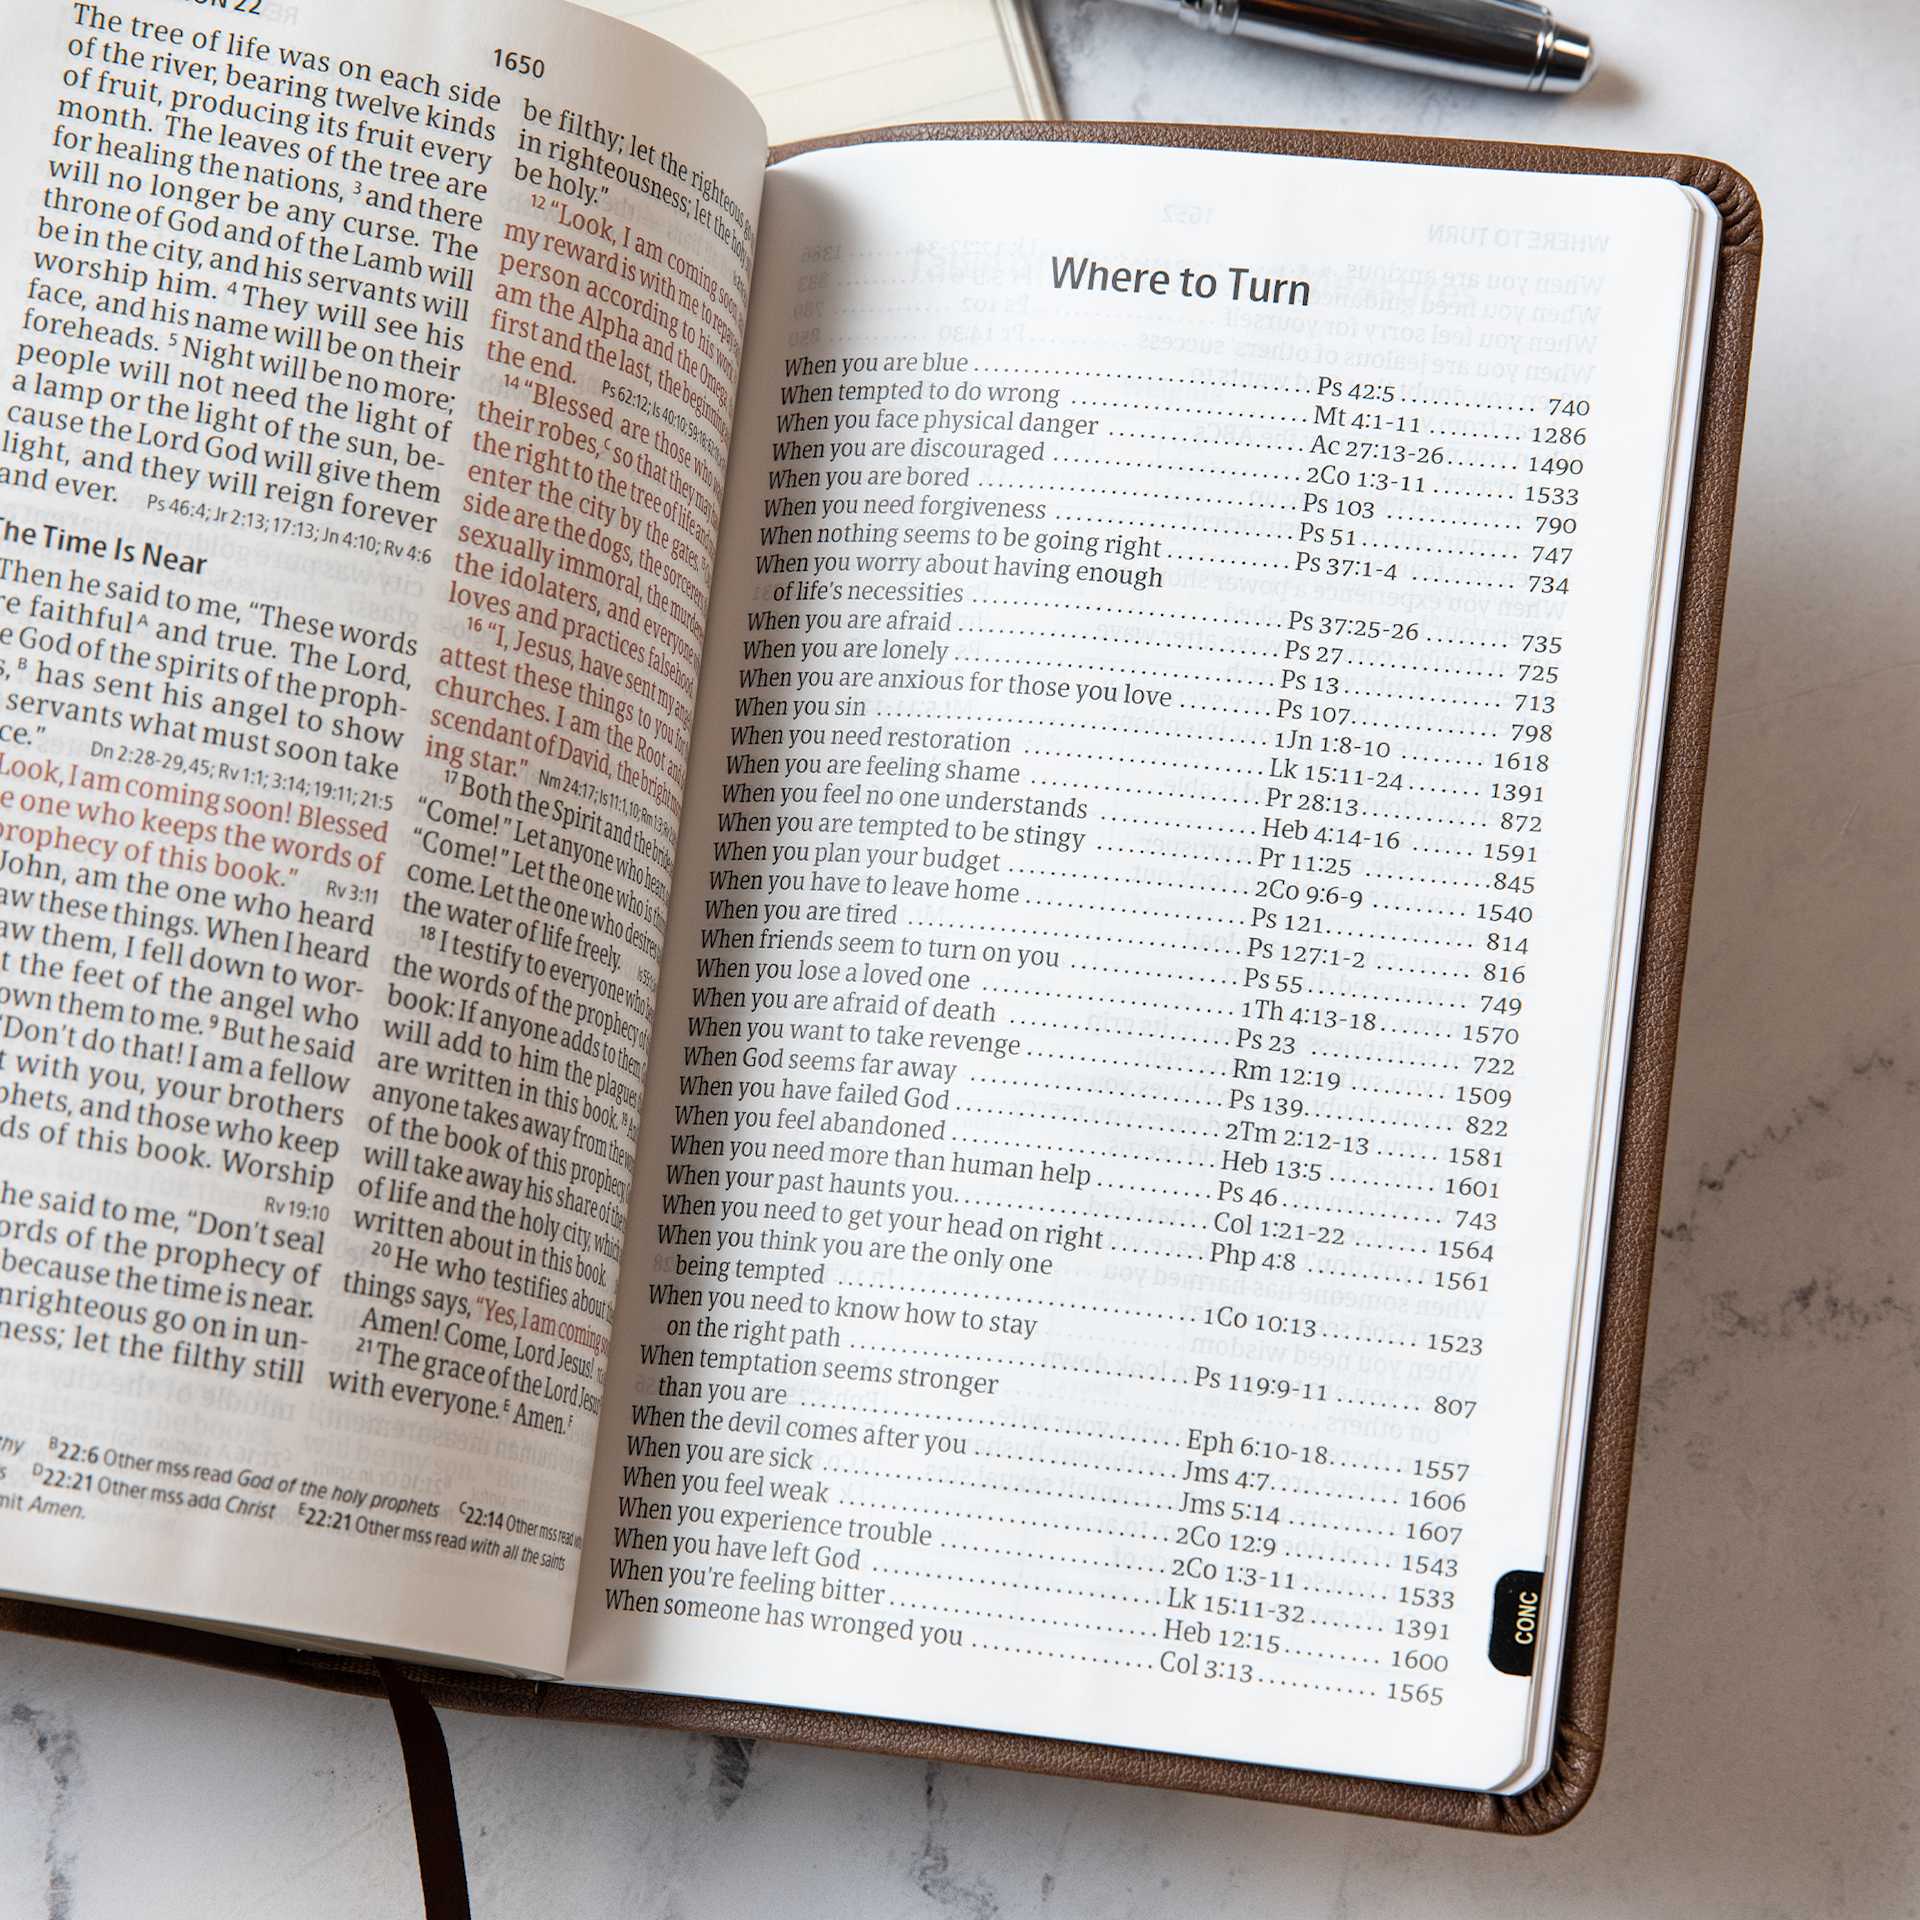 1650
The tree of life was on each side
of the river, bearing twelve kinds
of fruit, producing its fruit every
month. The leaves of the tree are
for healing the nations, 3 and there
will no longer be any curse. The
throne of God and of the Lamb will
be in the city, and his servants will
worship him. 4 They will see his
face, and his name will be on their
foreheads. 5 Night will be no more;
people will not need the light of
a lamp or the light of the sun, be-
cause the Lord God will give them
light, and they will reign forever
and ever. Ps 46:4; Jr 2:13; 17:13; Jn 4:10; Rv 4:6
The Time Is Near
Then he said to me, “These words
faithful A and true. The Lord,
God of the spirits of the proph-
B has sent his angel to show
servants what must soon take
Dn 2:28-29,45; Rv 1:1; 3:14; 19:11; 21:5
Look, I am coming soon! Blessed
one who keeps the words of
prophecy of this book.” Rv 3:11
John, am the one who heard
these things. When I heard
them, I fell down to wor-
the feet of the angel who
them to me. 9 But he said
“Don’t do that! I am a fellow
with you, your brothers
and those who keep
of this book. Worship
Rv 19:10
he said to me, “Don’t seal
of the prophecy of
because the time is near.
go on in un-
let the filthy still
be filthy; let the righteous go
in righteousness; let the holy
be holy.”
12 “Look, I am coming soon,
my reward is with me to repay
person according to his work.
am the Alpha and the Omega,
first and the last, the beginning
the end. Ps 62:12; Is 40:10;
14 “Blessed are those who
their robes, C so that they may
the right to the tree of life and
enter the city by the gates.
side are the dogs, the sorcerers,
sexually immoral, the
the idolaters, and everyone
loves and practices falsehood.
16 “I, Jesus, have sent my angel
attest these things to you for
churches. I am the Root and
scendant of David, the bright
ing star.” Nm 24:17; Is 11:1,10;
17 Both the Spirit and the bride
“Come!” Let anyone who hears
“Come!” Let the one who is
come. Let the one who desires
the water of life freely.
18 I testify to everyone who
the words of the prophecy of
book: If anyone adds to them,
will add to him the plagues
are written in this book. 19
anyone takes away from the
of the book of this prophecy,
will take away his share of the
of life and the holy city, which
written about in this book.
20 He who testifies about
things says, “Yes, I am coming
Amen! Come, Lord Jesus!
21 The grace of the Lord Jesus
with everyone. E Amen. F
B 22:6 Other mss read God of the holy prophets C 22:14 Other mss read
D 22:21 Other mss add Christ E 22:21 Other mss read with all the saints
Amen.
Where to Turn
When you are blue Ps 42:5 740
When tempted to do wrong Mt 4:1-11 1286
When you face physical danger Ac 27:13-26 1490
When you are discouraged 2Co 1:3-11 1533
When you are bored Ps 103 790
When you need forgiveness Ps 51 747
When nothing seems to be going right Ps 37:1-4 734
When you worry about having enough
of life’s necessities Ps 37:25-26 735
When you are afraid Ps 27 725
When you are lonely Ps 13 713
When you are anxious for those you love Ps 107 798
When you sin 1Jn 1:8-10 1618
When you need restoration Lk 15:11-24 1391
When you are feeling shame Pr 28:13 872
When you feel no one understands Heb 4:14-16 1591
When you are tempted to be stingy Pr 11:25 845
When you plan your budget 2Co 9:6-9 1540
When you have to leave home Ps 121 814
When you are tired Ps 127:1-2 816
When friends seem to turn on you Ps 55 749
When you lose a loved one 1Th 4:13-18 1570
When you are afraid of death Ps 23 722
When you want to take revenge Rm 12:19 1509
When God seems far away Ps 139 822
When you have failed God 2Tm 2:12-13 1581
When you feel abandoned Heb 13:5 1601
When you need more than human help Ps 46 743
When your past haunts you Col 1:21-22 1564
When you need to get your head on right Php 4:8 1561
When you think you are the only one
being tempted 1Co 10:13 1523
When you need to know how to stay
on the right path Ps 119:9-11 807
When temptation seems stronger
than you are Eph 6:10-18 1557
When the devil comes after you Jms 4:7 1606
When you are sick Jms 5:14 1607
When you feel weak 2Co 12:9 1543
When you experience trouble 2Co 1:3-11 1533
When you have left God Lk 15:11-32 1391
When you’re feeling bitter Heb 12:15 1600
When someone has wronged you Col 3:13 1565
CONC